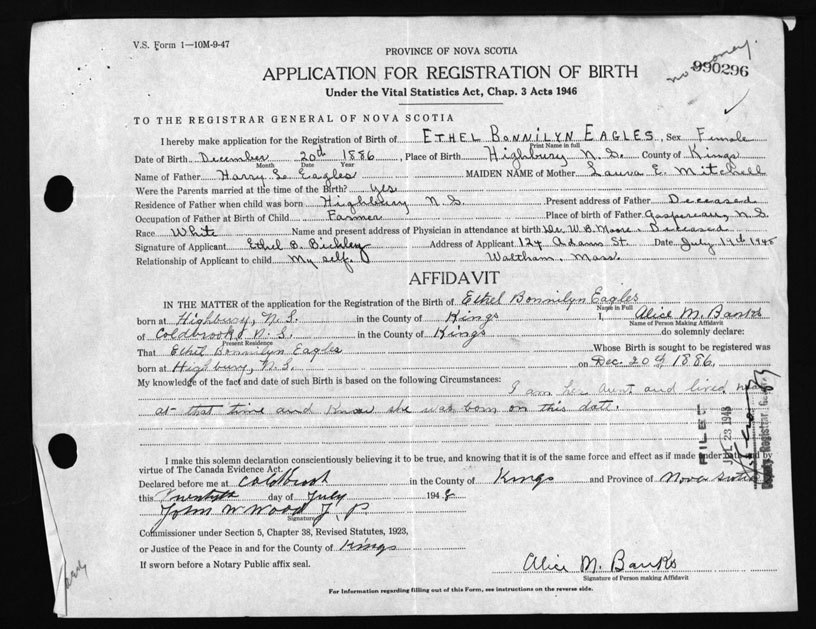 V.S. Form 1—10M-9-47
PROVINCE OF NOVA SCOTIA
no money.
990296
APPLICATION FOR REGISTRATION OF BIRTH
Under the Vital Statistics Act, Chap. 3 Acts 1946
TO THE REGISTRAR GENERAL OF NOVA SCOTIA
I hereby make application for the Registration of Birth of ETHEL BONNILYN EAGLES, Sex Female
Print Name in full
Date of Birth December 20th 1886, Place of Birth Highbury N.S. County of Kings
Month Date Year
Name of Father Harry L. Eagles MAIDEN NAME of Mother Laura E. Mitchell
Were the Parents married at the time of the Birth? yes
Residence of Father when child was born Highbury N.S. Present address of Father Deceased
Occupation of Father at Birth of Child Farmer Place of birth of Father Gaspereau, N.S.
Race White Name and present address of Physician in attendance at birth Dr. W.B. Moore - Deceased
Signature of Applicant Ethel B. Bickley Address of Applicant 124 Adams St. Date July 19th 1948
Relationship of Applicant to child My self. Waltham, Mass.
AFFIDAVIT
IN THE MATTER of the application for the Registration of the Birth of Ethel Bonnilyn Eagles
Name in Full
born at Highbury, N.S. in the County of Kings I, Alice M. Banks
Name of Person Making Affidavit
of Coldbrook, N.S. in the County of Kings do solemnly declare:
Present Residence
That Ethel Bonnilyn Eagles Whose Birth is sought to be registered was
born at Highbury, N.S. on Dec. 20th 1886.
My knowledge of the fact and date of such Birth is based on the following Circumstances:
I am her aunt and lived near
at that time and know she was born on this date.
FILED
23 1948
Deputy Registrar General
I make this solemn declaration conscientiously believing it to be true, and knowing that it is of the same force and effect as if made under oath and by
virtue of The Canada Evidence Act.
Declared before me at Coldbrook in the County of Kings and Province of Nova Scotia
this Twentieth day of July 1948
John W Wood J.P
Signature
Commissioner under Section 5, Chapter 38, Revised Statutes, 1923,
or Justice of the Peace in and for the County of Kings
If sworn before a Notary Public affix seal.
Alice M. Banks
Signature of Person making Affidavit
For Information regarding filling out of this Form, see instructions on the reverse side.